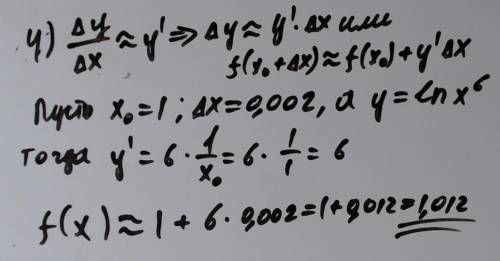 4) Δy/Δx ≈ y' ⇒ Δy ≈ y'·Δx или
f(x₀+Δx) ≈ f(x₀) + y'Δx
Пусть x₀=1; Δx=0,002, а y=ln x⁶
тогда y' = 6·1/x₀ = 6·1/1 = 6
f(x) ≈ 1 + 6·0,002 = 1+0,012 = 1,012